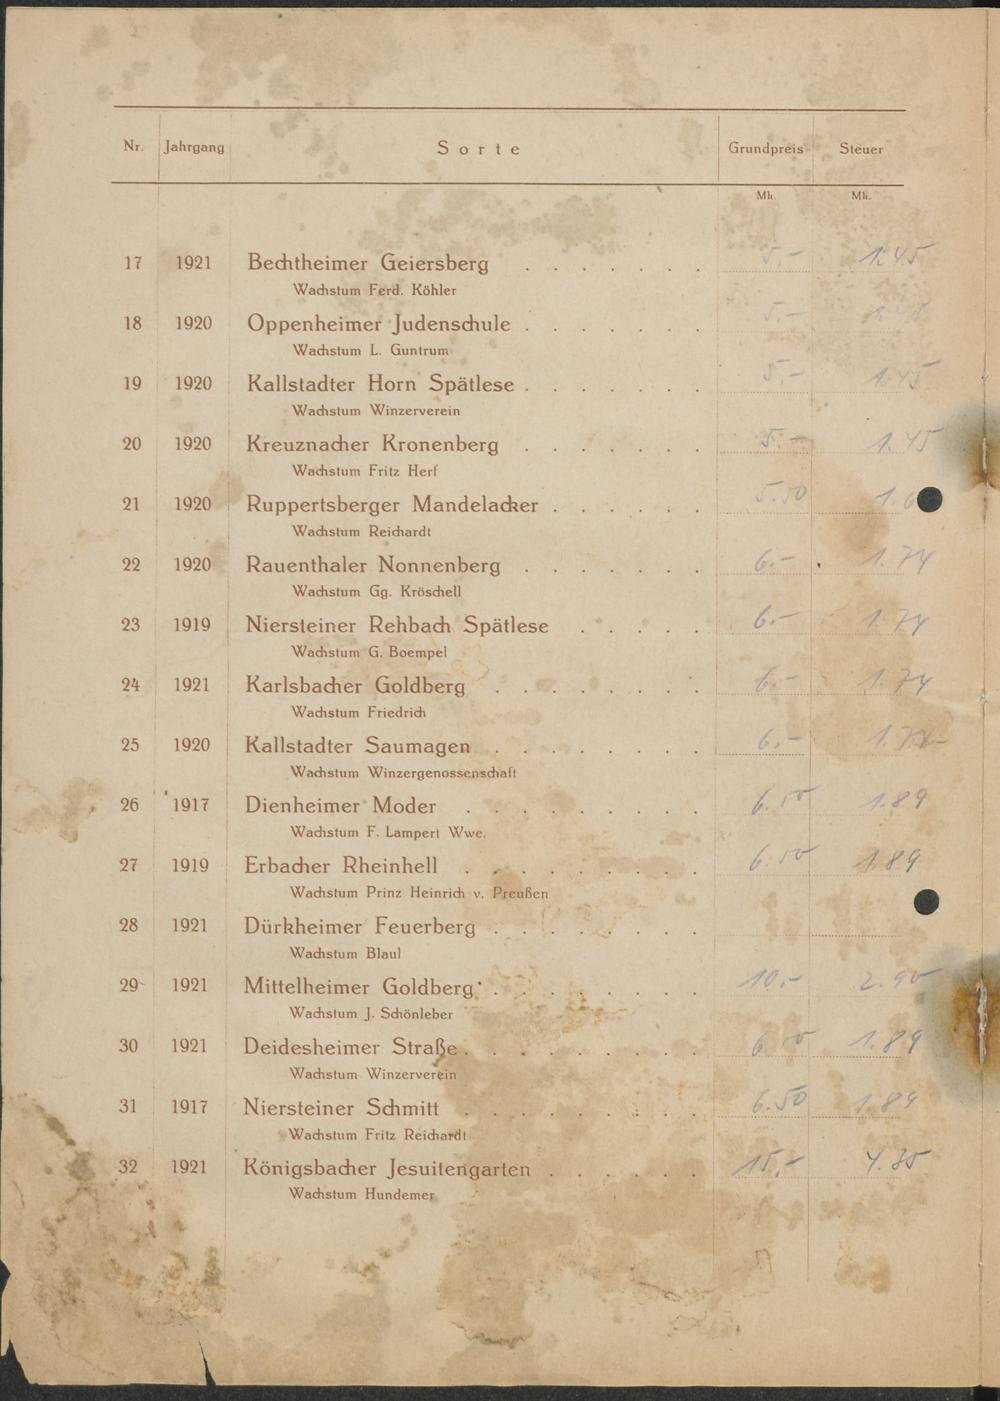 Nr. Jahrgang Sorte Grundpreis Steuer
Mk. Mk.
17 1921 Bechtheimer Geiersberg . . . . . . . 5.- 1.45
Wachstum Ferd. Köhler
18 1920 Oppenheimer Judenschule . . . . . . . 5.- 1.45
Wachstum L. Guntrum
19 1920 Kallstadter Horn Spätlese . . . . . . . 5.- 1.45
Wachstum Winzerverein
20 1920 Kreuznacher Kronenberg . . . . . . . 5.- 1.45
Wachstum Fritz Herf
21 1920 Ruppertsberger Mandelacker . . . . . . 5.50
Wachstum Reichardt
22 1920 Rauenthaler Nonnenberg . . . . . . . 6.- 1.74
Wachstum Gg. Kröschell
23 1919 Niersteiner Rehbach Spätlese . . . . . 6.- 1.74
Wachstum G. Boempel
24 1921 Karlsbacher Goldberg . . . . . . . . 6.- 1.74
Wachstum Friedrich
25 1920 Kallstadter Saumagen . . . . . . . . 6.- 1.74
Wachstum Winzergenossenschaft
26 1917 Dienheimer Moder . . . . . . . . . 6.50 1.89
Wachstum F. Lampert Wwe.
27 1919 Erbacher Rheinhell . . . . . . . . . 6.50 1.89
Wachstum Prinz Heinrich v. Preußen
28 1921 Dürkheimer Feuerberg . . . . . . . .
Wachstum Blaul
29 1921 Mittelheimer Goldberg . . . . . . . . 10.- 2.90
Wachstum J. Schönleber
30 1921 Deidesheimer Straße . . . . . . . . . 6.50 1.89
Wachstum Winzerverein
31 1917 Niersteiner Schmitt . . . . . . . . . 6.50 1.89
Wachstum Fritz Reichardt
32 1921 Königsbacher Jesuitengarten . . . . . . 15.- 4.35
Wachstum Hundemer